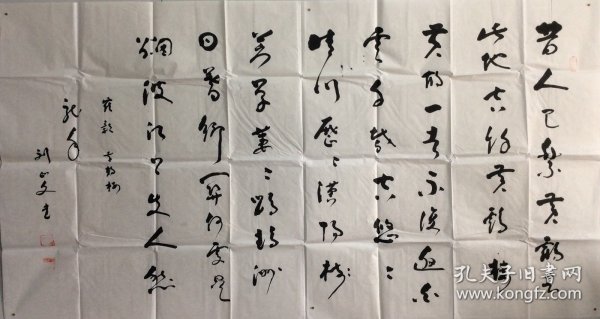 昔人已乘黄鹤去
此地空余黄鹤楼
黄鹤一去不复返白
云千载空悠〻
晴川历〻汉阳树
芳草萋〻鹦鹉洲
日暮乡关何处是
烟波江上使人愁
崔颢 黄鹤楼
龙年
刘
孔夫子旧书网
www.kongfz.com